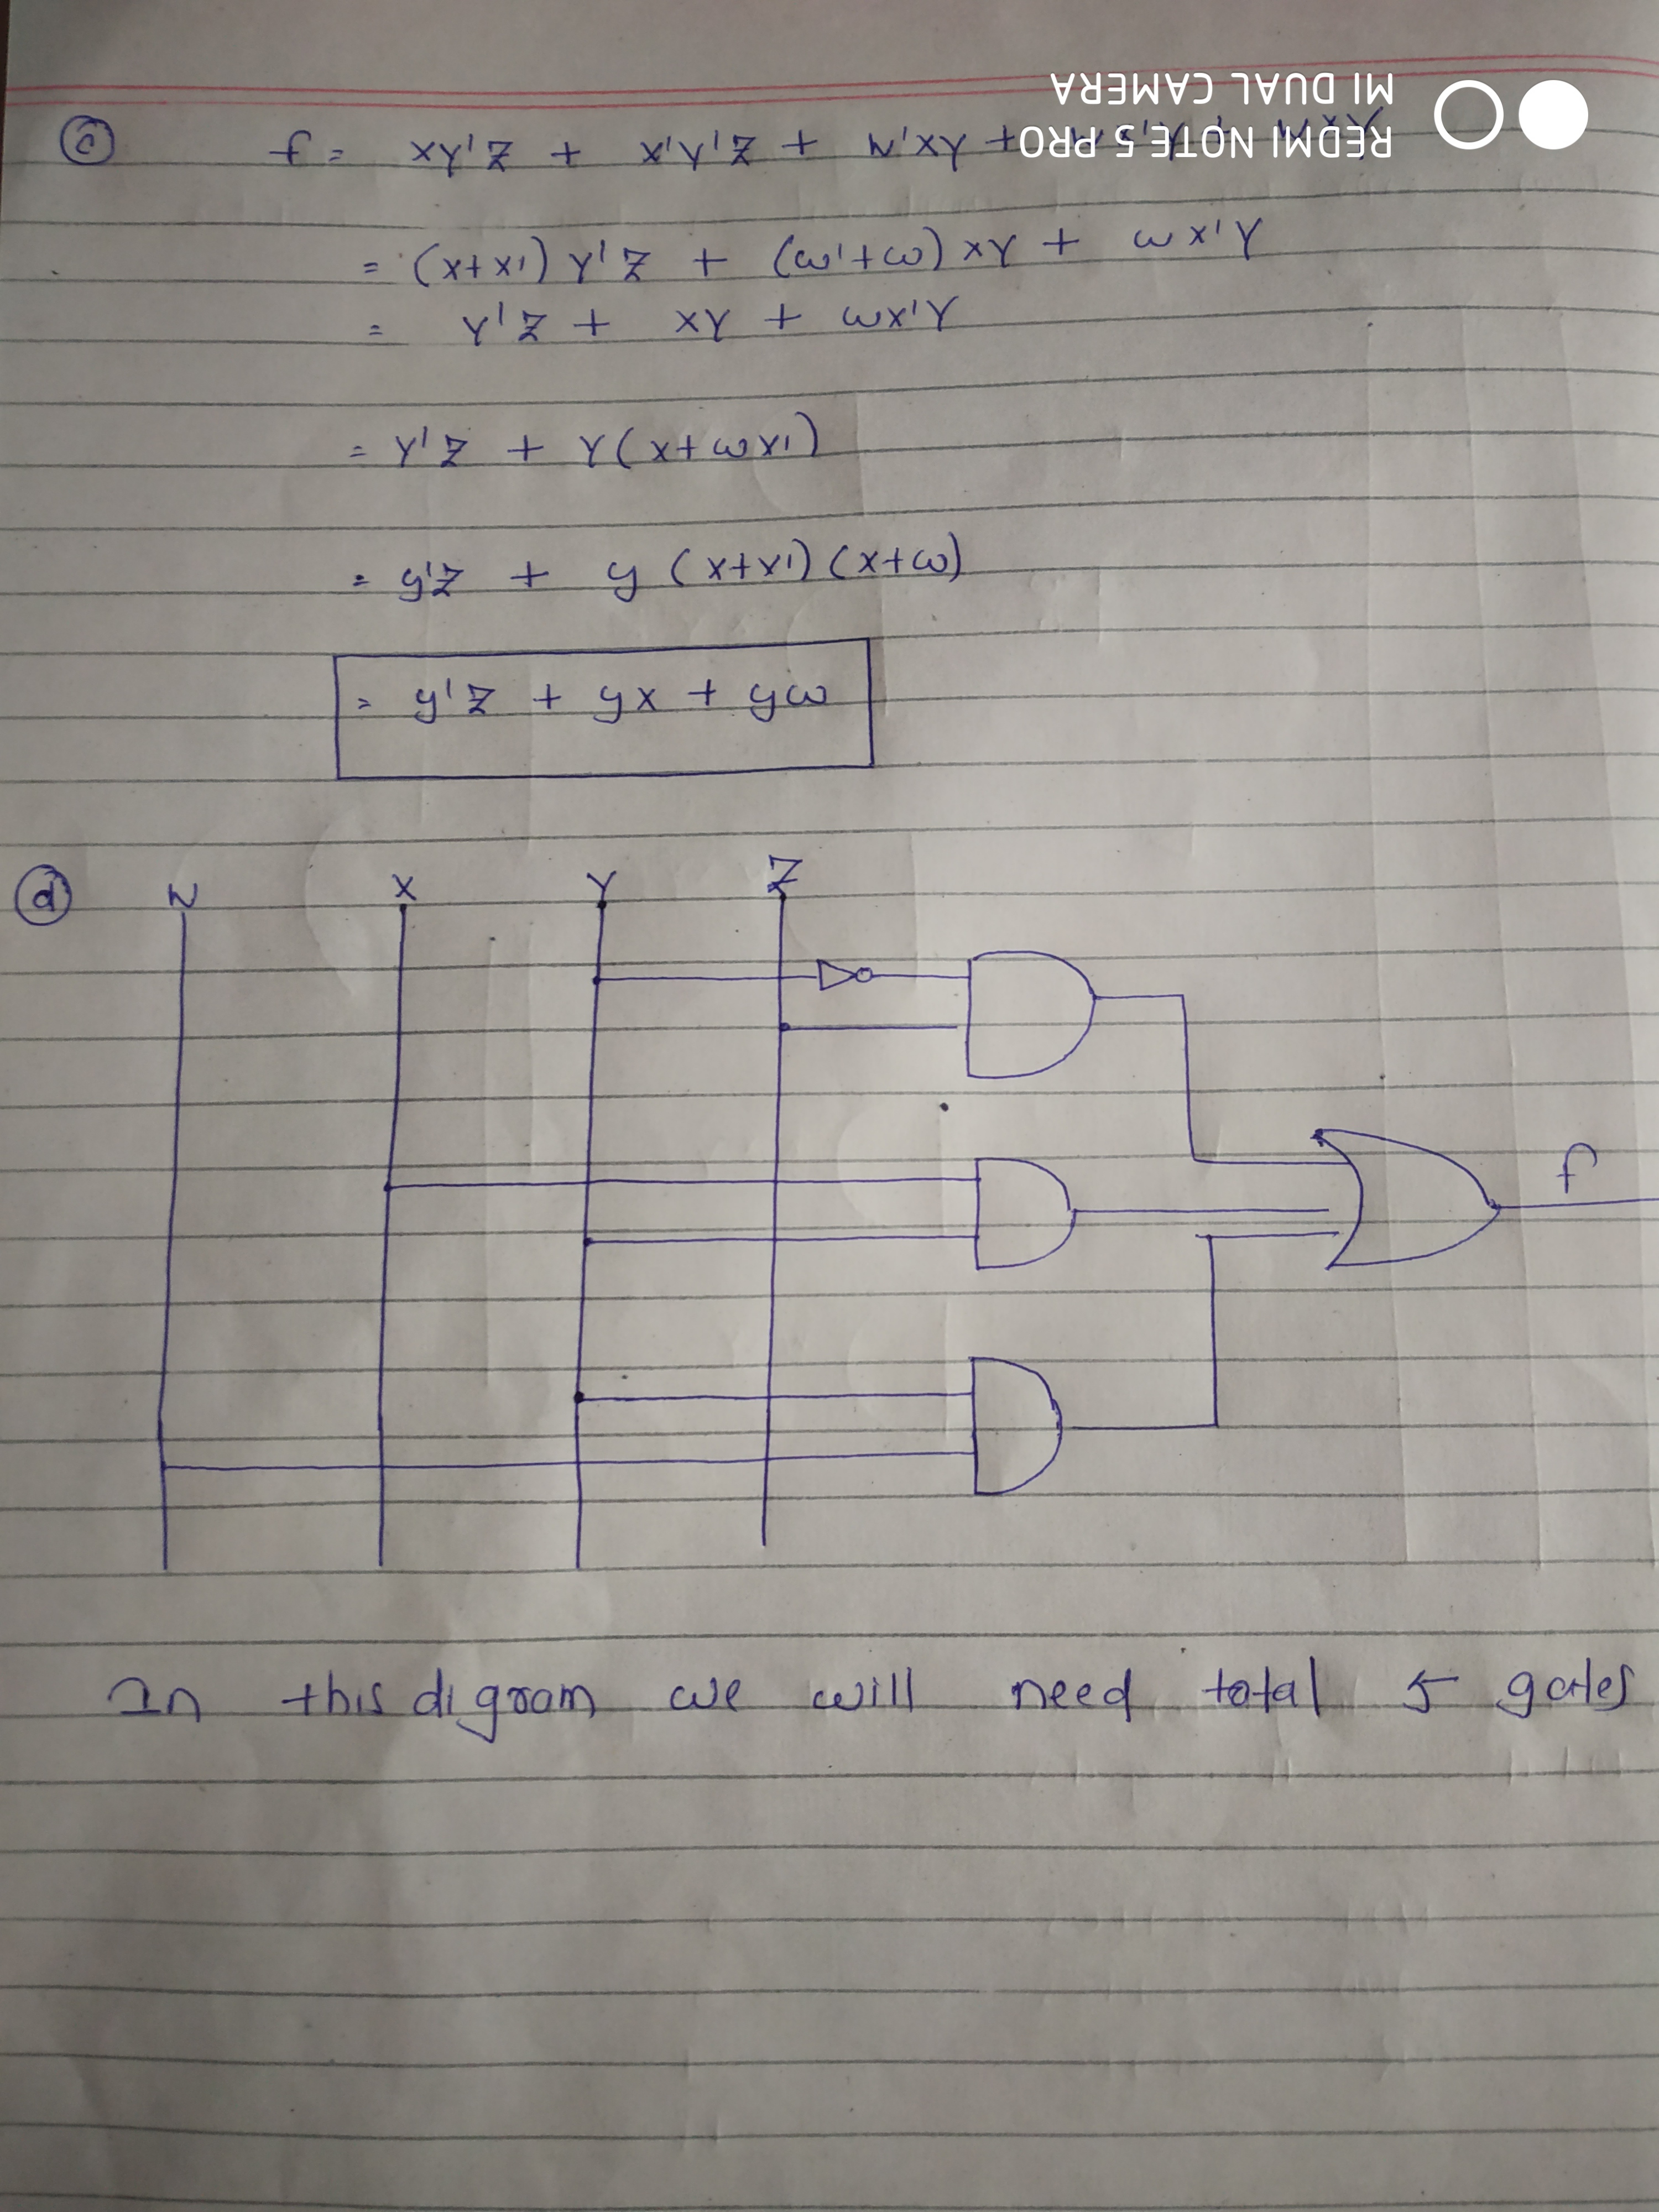 c f = xy'z + x'y'z + w'xy +
= (x+x') y'z + (w'+w) xy + wx'y
= y'z + xy + wx'y
= y'z + y(x+wx')
= y'z + y (x+x') (x+w)
= y'z + yx + yw
d W X Y Z
f
In this digram we will need total 5 gates
REDMI NOTE 5 PRO
MI DUAL CAMERA